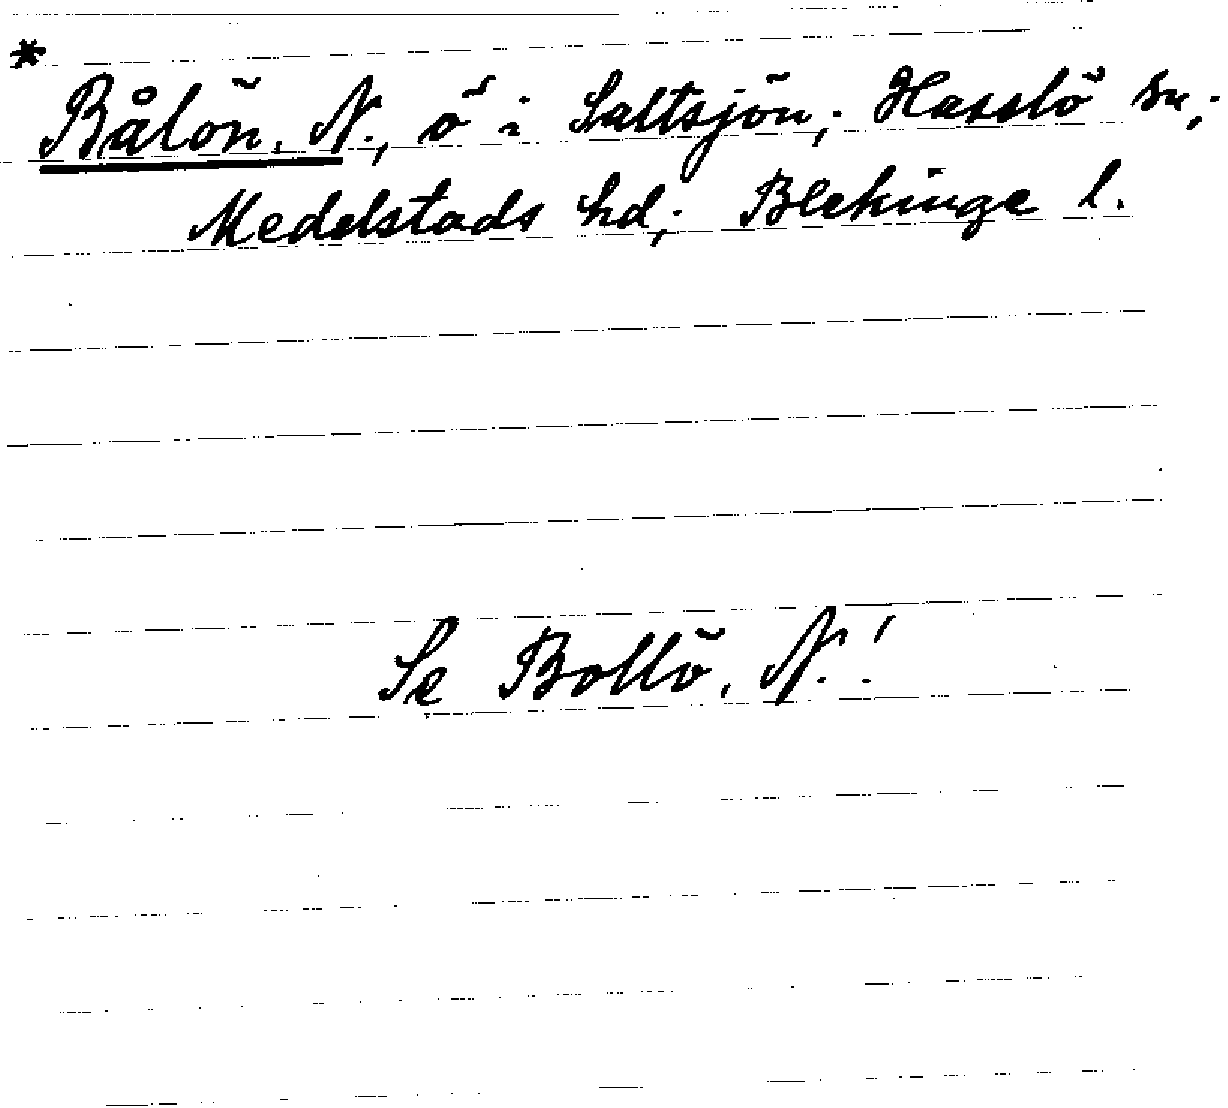 *
Bålön, N., ö i Saltsjön; Hasslö sn;
Medelstads hd; Blekinge l.
Se Bollö, N.!